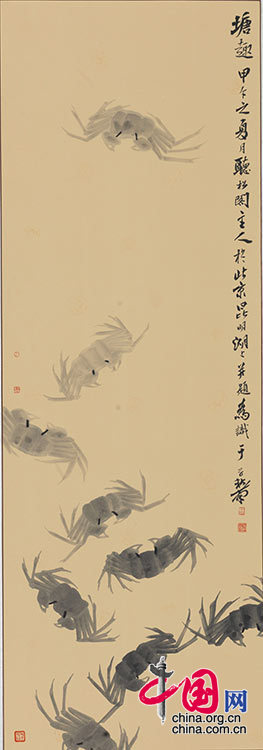 塘趣 甲午之夏月聽松閣主人於北京昆明湖上並題為識 于
中国网
china.org.cn
china.com.cn